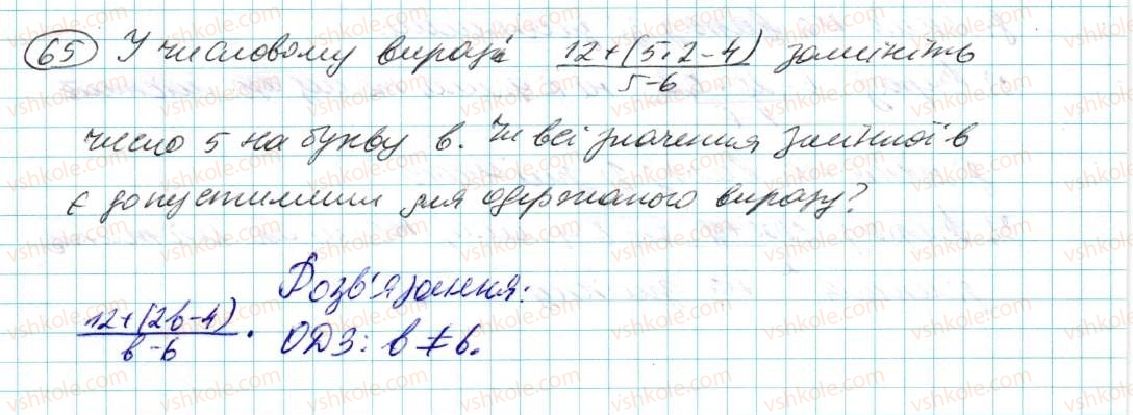 65 У числовому виразі 12+(5·2-4)/5-6 замініть
число 5 на букву в. Чи всі значення змінної в
є допустимими для одержаного виразу?
Розв'язання:
12+(2b-4)/в-6. ОДЗ: в ≠ 6.